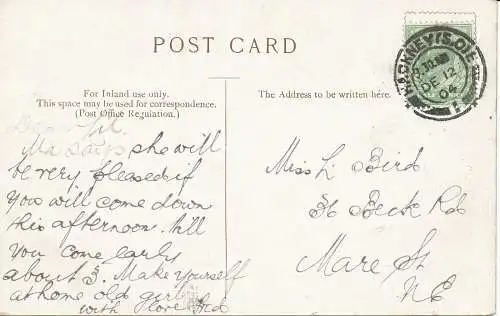 POST CARD
For Inland use only.
This space may be used for correspondence.
(Post Office Regulation.)
The Address to be written here.
HACKNEY (S.O.) N.E.
DE 12
04
Dear Lil.
Ma says she will
be very pleased if
you will come down
this afternoon. Will
you come early
about 3. Make yourself
at home old girl
with love
Miss L. Bird
36 Beck Rd
Mare St
NE